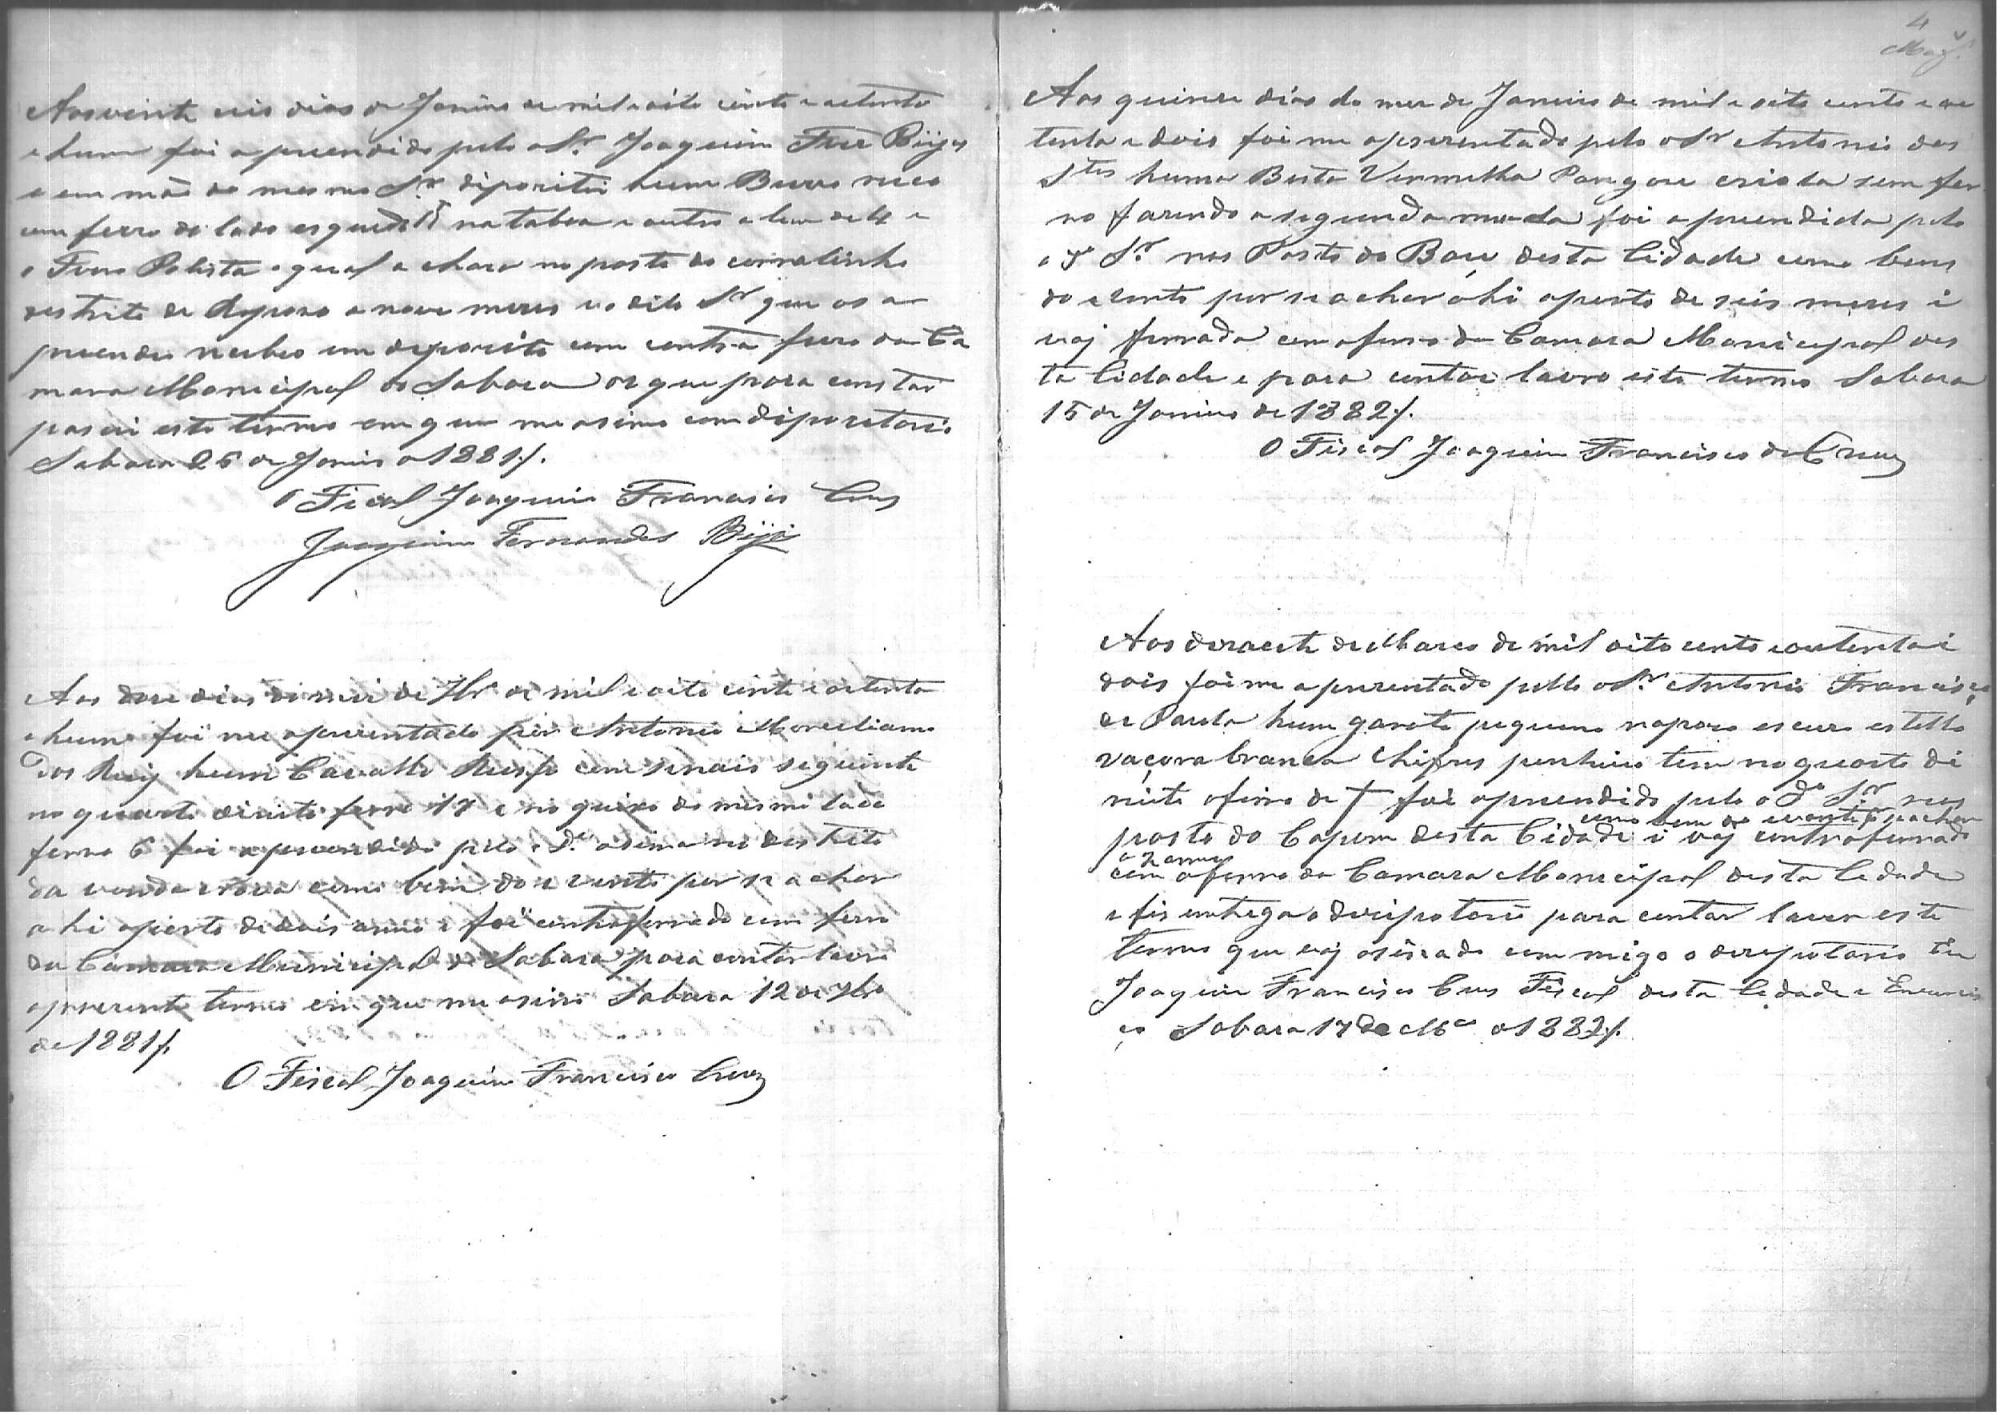 Aos vinte ceis dias de Janeiro de mil e oito cento e oetenta
e hum foi aprendido pello o Sr. Joaquim Biijos
e em mão do mesmo Sr. dipozitei hum Burro
um ferro do lado esquerdo na taboa e outro
o qual a chava no pasto do corralinho
destrito de Rapozo a nove mezes e o dito Sr que os a
prendeu recebeo em deposito com contra ferro da Ca
mara Monicipal de Sabara os que para constar
pasei este termo em que me asino com diporetario
Sabara 26 de Janeiro 1881/.
O Fical Joaquim Francisco Crus
Joaquim Fernandes Biijos
Aos doze dias do mei de 7br de mil e oito cento e oetenta
e hum foi me aprezentado por Antonio Moreeliano
dos Reiz hum Cavallo Ruspo com sinais seguinte
no quarto direito ferro 17 e no queixo do mesmo lado
ferro 6 foi aprenndido pelo o Do. asima no destrito
da venda nova como bem do e vento por se achar
ahi aperto de dois annos e foi contraferrado com ferro
da Camara Municipal de Sabara para contar lavro
oprezente termo em que me asino Sabara 12 de 7bro
de 1881/.
O Fiscal Joaquim Francisco Cruz
4
Aos quinze dias do mez de Janeiro de mil e oito cento e oe
tenta e dois foi me apezentado pelo o Sr Antonio dos
Stos huma Besta Vermelha crioila sem fer
ro fazendo a segunda muda foi aprendida pelo
o Do Sr. nos Pasto do Bau desta Cidade como bens
do evento por se achar ahi aperto de seis mezes i
vaj ferrada com o ferro da Camara Monicipal des
ta Cidade e para contar lavro este termo Sabara
15 de Janeiro de 1882/.
O Fiscal Joaquim Francisco da Cruz
Aos dezacete de Março de mil oito cento e outenta i
dois foi me aprezentado pello o Sr. Antonio Francisco
de Paula hum garote pequeno rapozo escuro
vaçora branca chifres tem no quarto di
reito o ferro de † foi aprendido pelo o Do Sr nos
como bem do evento por se achar
pasto do Capom desta Cidade i vaj contraferrado
a 2 annos
com o ferro da Camara Monicipal desta Cidade
e fis entrega o para contar lavor este
termo que vaj asinado com migo o Eu
Joaquim Francisco Crus Fiscal desta Cidade e
Sabara 17 de Mço 1882/.